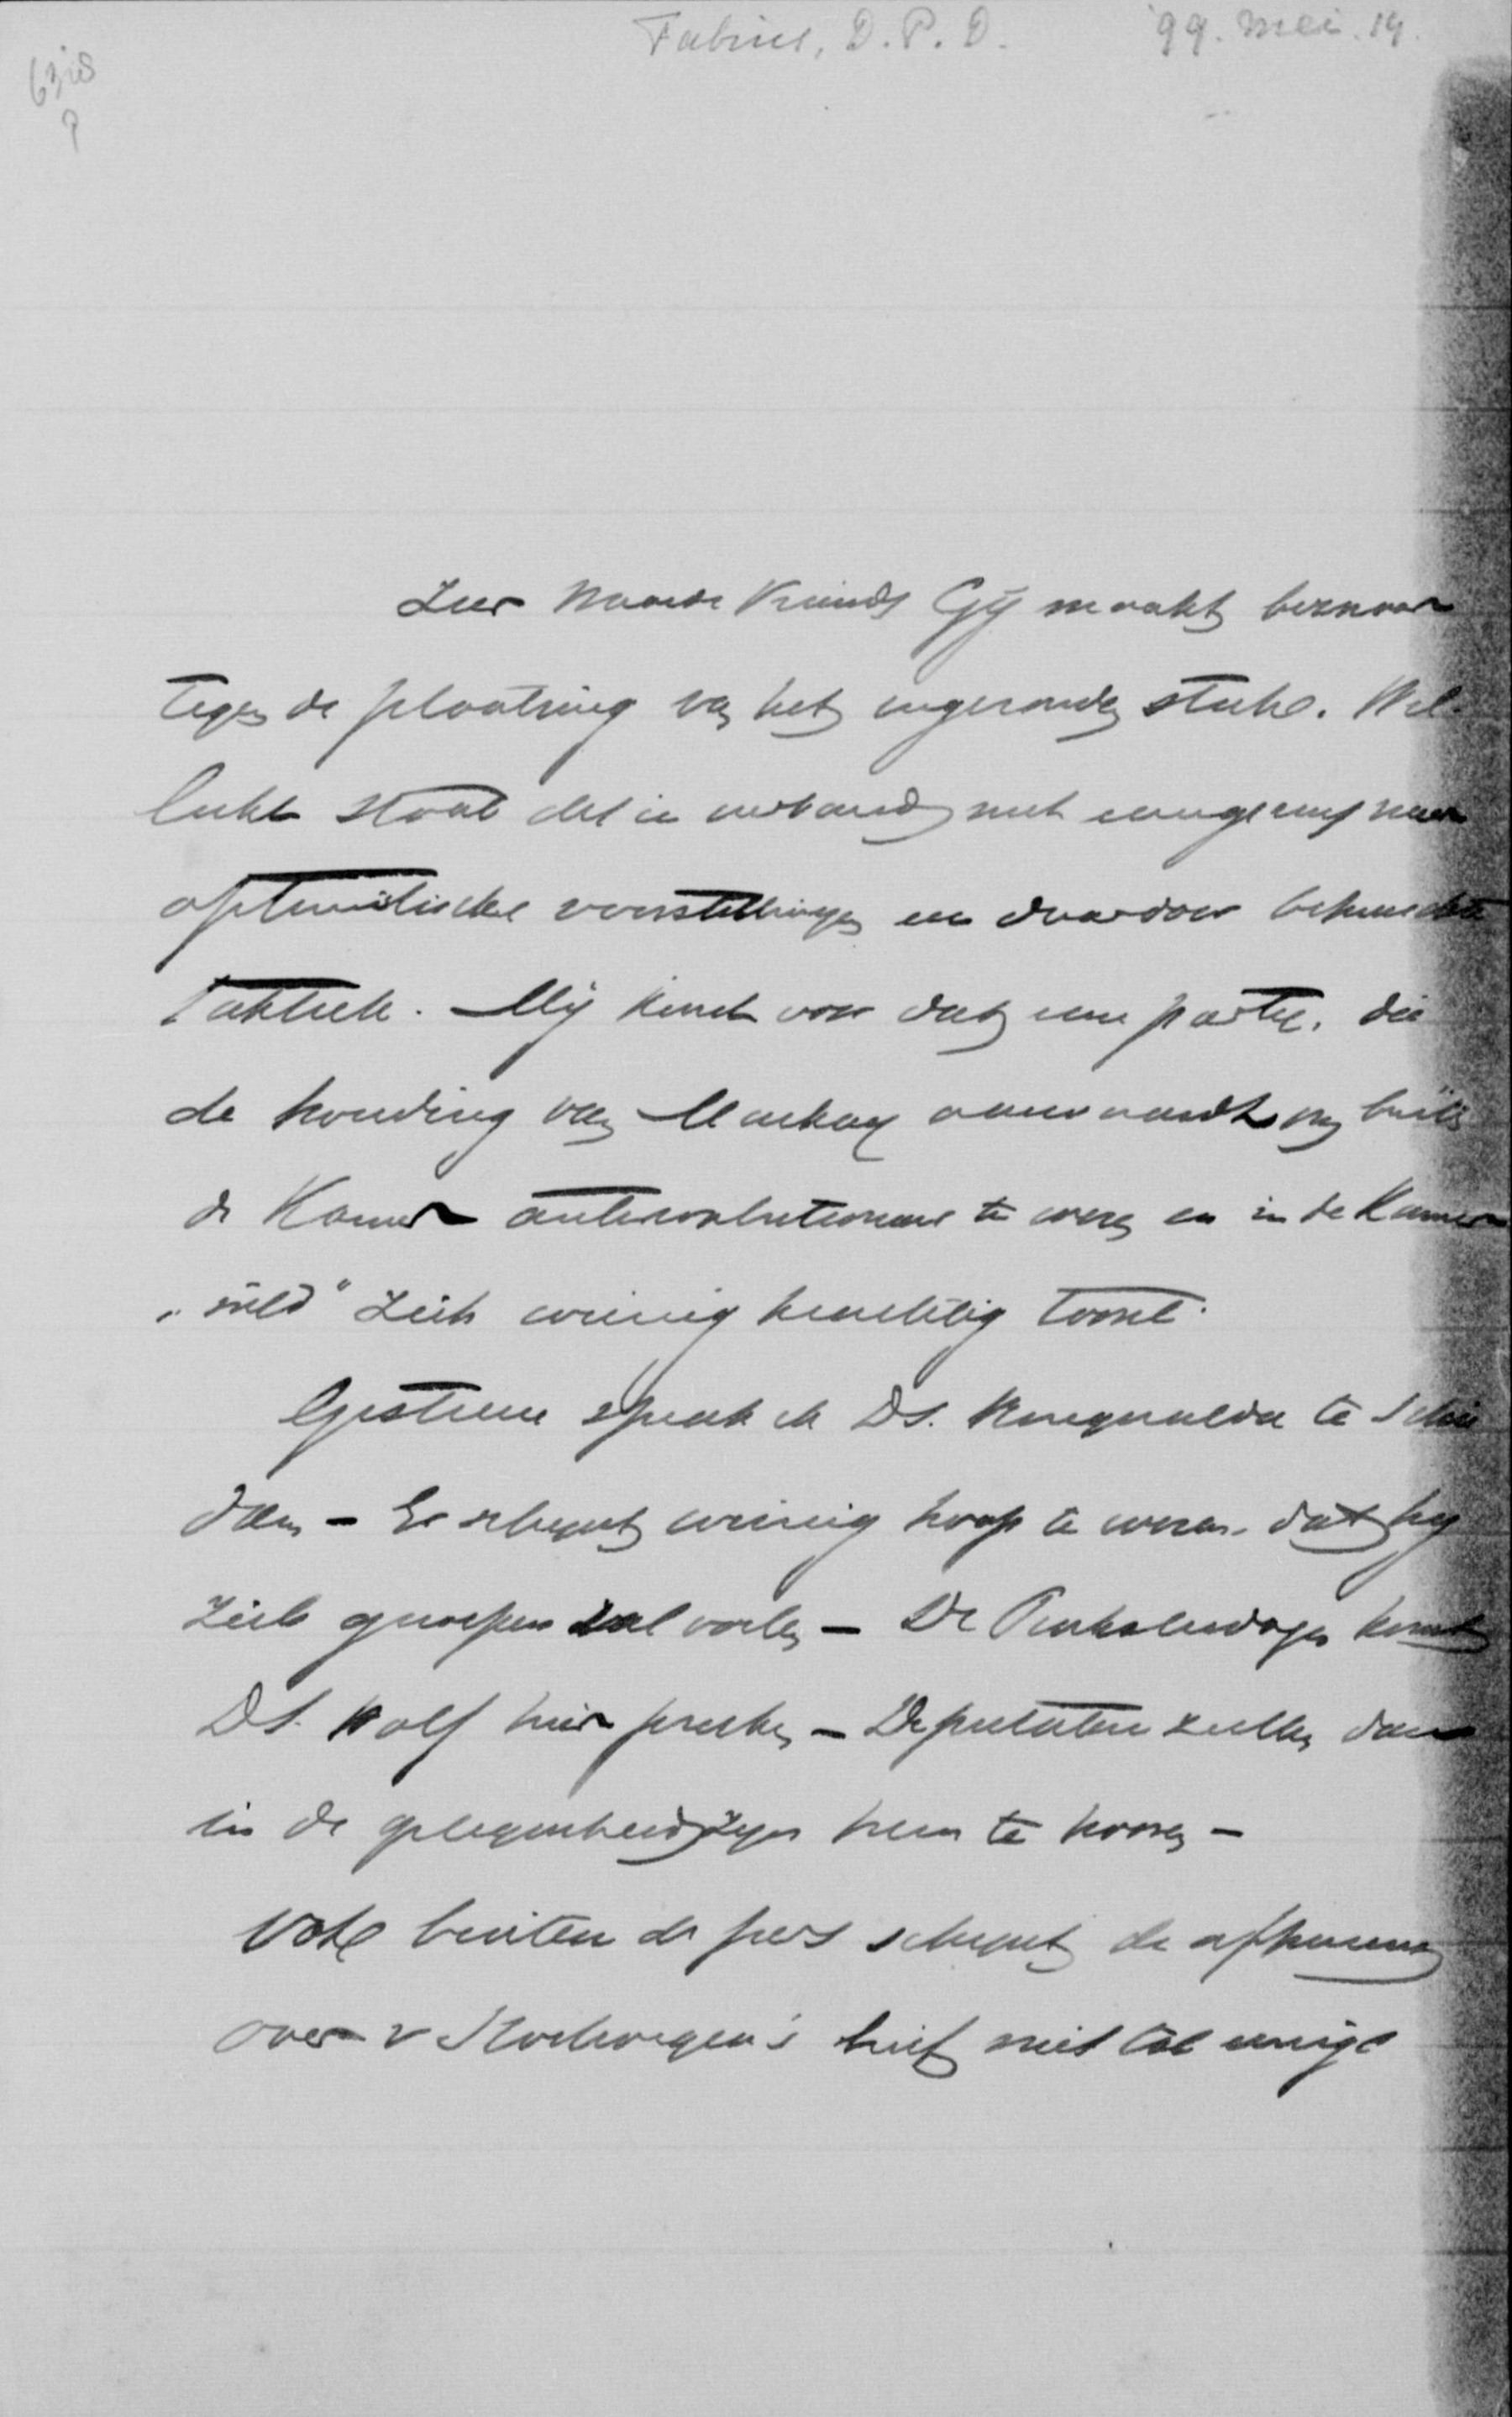 Fabius, D. P. D. '99. Mei. 19.
Zeer Waarde Vriend, Gij maakt bezwaar
tegen de plaatsing van het ingezonden stuk. Wel-
licht staat dit in verband met eenigszins meer
optimistische voorstellingen en daardoor beheerschte
taktiek. Mij komt voor dat eene partij, die
de houding van Mackay aanvaardt om buiten
de Kamer antirevolutionair te wezen en in de Kamer
„mild" zich weinig krachtig toont.
Gisteren sprak ik Ds. te Schie
dam – Er schijnt weinig hoop te wezen, dat hij
zich geroepen zal voelen – De Pinksterdagen komt
Ds. Wolf hier preken – Deputaten zullen dan
in de gelegenheid zijn hem te hooren –
Ook buiten de pers schijnt de afkeuring
over v 's brief niet tot eenige